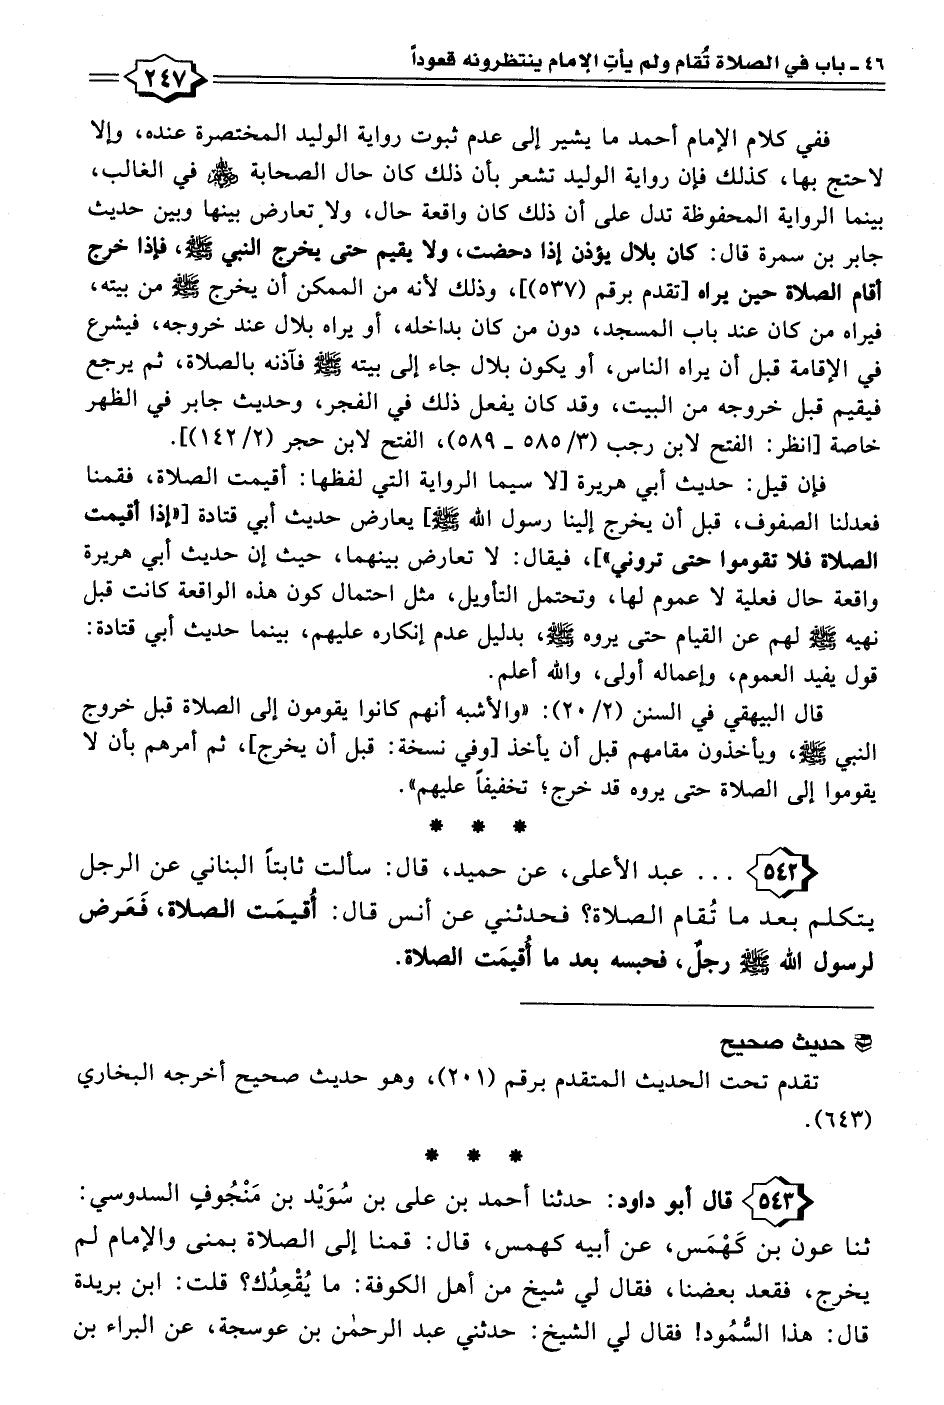 ٤٦ - باب في الصلاة تُقام ولم يأتِ الإمام ينتظرونه قعوداً
٢٤٧
ففي كلام الإمام أحمد ما يشير إلى عدم ثبوت رواية الوليد المختصرة عنده، وإلا
لاحتج بها، كذلك فإن رواية الوليد تشعر بأن ذلك كان حال الصحابة ﷺ في الغالب،
بينما الرواية المحفوظة تدل على أن ذلك كان واقعة حال، ولا تعارض بينها وبين حديث
جابر بن سمرة قال: كان بلال يؤذن إذا دحضت، ولا يقيم حتى يخرج النبي ﷺ، فإذا خرج
أقام الصلاة حين يراه [تقدم برقم (٥٣٧)]، وذلك لأنه من الممكن أن يخرج ﷺ من بيته،
فيراه من كان عند باب المسجد، دون من كان بداخله، أو يراه بلال عند خروجه، فيشرع
في الإقامة قبل أن يراه الناس، أو يكون بلال جاء إلى بيته ﷺ فآذنه بالصلاة، ثم يرجع
فيقيم قبل خروجه من البيت، وقد كان يفعل ذلك في الفجر، وحديث جابر في الظهر
خاصة [انظر: الفتح لابن رجب (٣/ ٥٨٥ - ٥٨٩)، الفتح لابن حجر (٢/ ١٤٢)].
فإن قيل: حديث أبي هريرة [لا سيما الرواية التي لفظها: أقيمت الصلاة، فقمنا
فعدلنا الصفوف، قبل أن يخرج إلينا رسول الله ﷺ] يعارض حديث أبي قتادة [«إذا أقيمت
الصلاة فلا تقوموا حتى تروني»]، فيقال: لا تعارض بينهما، حيث إن حديث أبي هريرة
واقعة حال فعلية لا عموم لها، وتحتمل التأويل، مثل احتمال كون هذه الواقعة كانت قبل
نهيه ﷺ لهم عن القيام حتى يروه ﷺ، بدليل عدم إنكاره عليهم، بينما حديث أبي قتادة:
قول يفيد العموم، وإعماله أولى، والله أعلم.
قال البيهقي في السنن (٢/ ٢٠): «والأشبه أنهم كانوا يقومون إلى الصلاة قبل خروج
النبي ﷺ، ويأخذون مقامهم قبل أن يأخذ [وفي نسخة: قبل أن يخرج]، ثم أمرهم بأن لا
يقوموا إلى الصلاة حتى يروه قد خرج؛ تخفيفاً عليهم».
* * *
٥٤٢ ... عبد الأعلى، عن حميد، قال: سألت ثابتاً البناني عن الرجل
يتكلم بعد ما تُقام الصلاة؟ فحدثني عن أنس قال: أُقيمَت الصلاة، فَعَرض
لرسول الله ﷺ رجلٌ، فحبسه بعد ما أُقيمَت الصلاة.
حديث صحيح
تقدم تحت الحديث المتقدم برقم (٢٠١)، وهو حديث صحيح أخرجه البخاري
(٦٤٣).
* * *
٥٤٣ قال أبو داود: حدثنا أحمد بن علي بن سُوَيْد بن مَنْجُوفٍ السدوسي:
ثنا عون بن كَهْمَس، عن أبيه كهمس، قال: قمنا إلى الصلاة بمنى والإمام لم
يخرج، فقعد بعضنا، فقال لي شيخ من أهل الكوفة: ما يُقْعِدُك؟ قلت: ابن بريدة
قال: هذا السُّمُود! فقال لي الشيخ: حدثني عبد الرحمٰن بن عوسجة، عن البراء بن